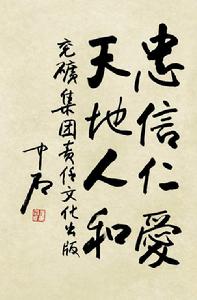 忠信仁愛
天地人和
兖矿集团责任文化出版
中石